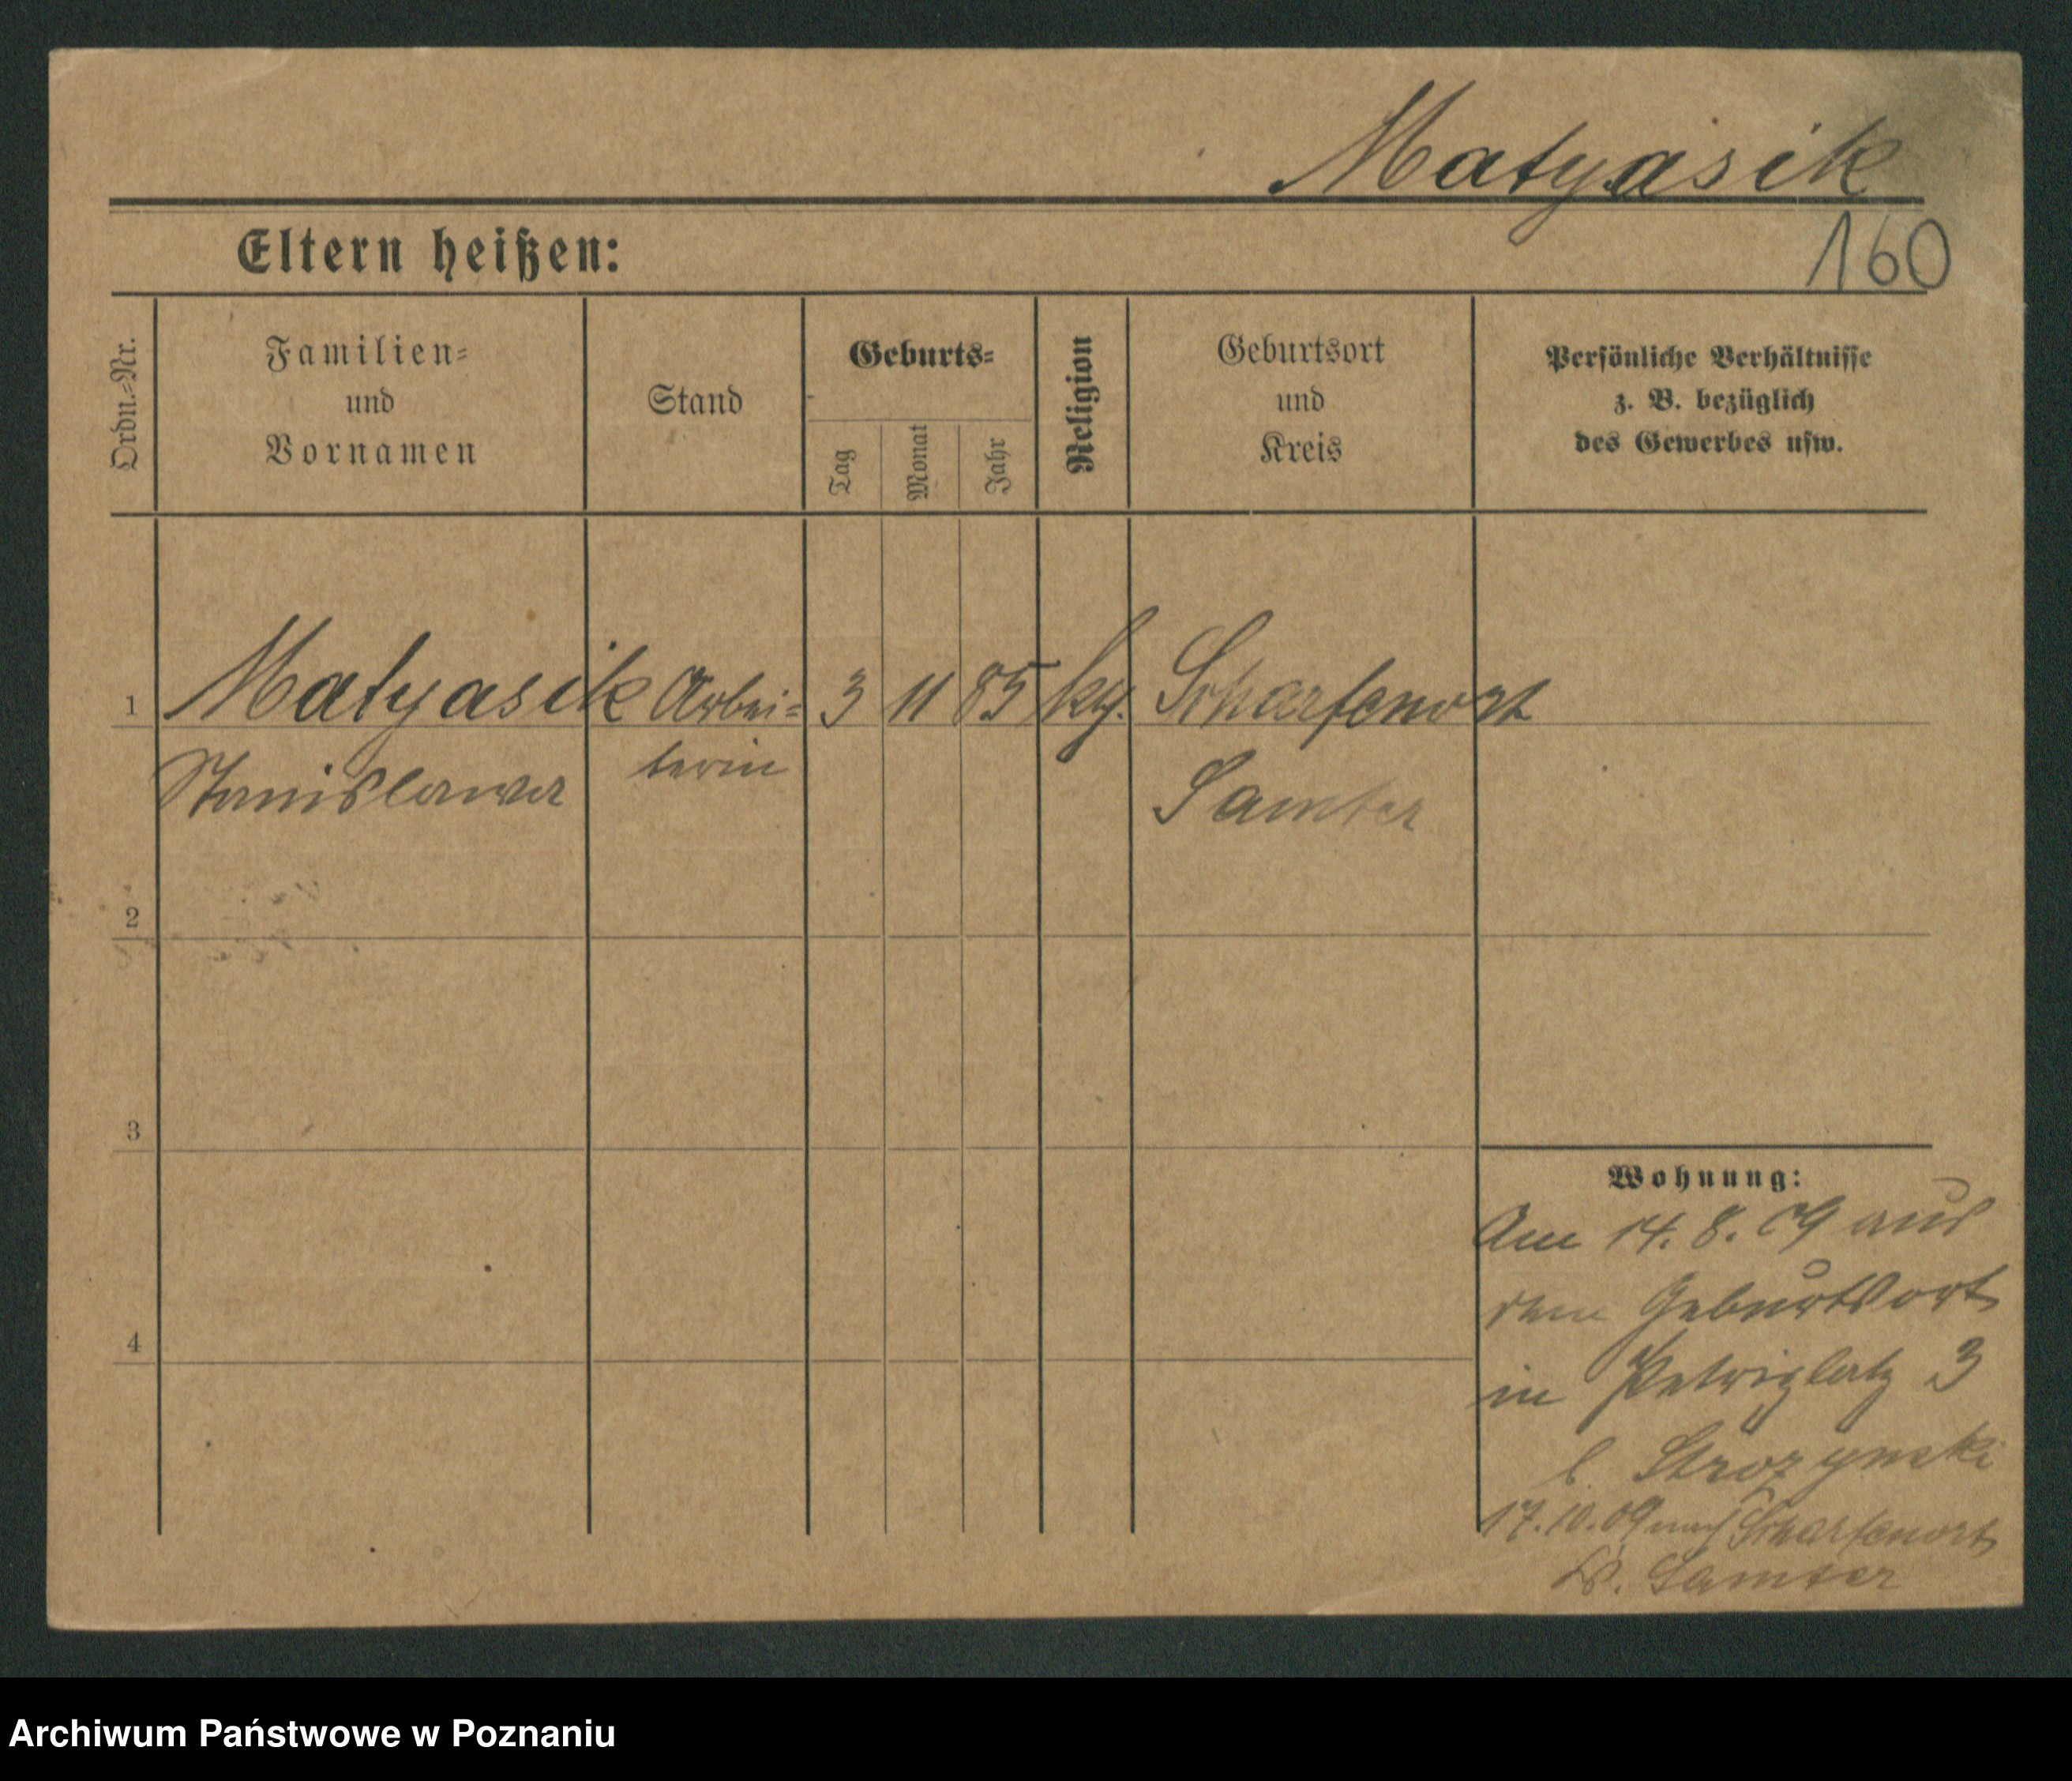 Matyasik
160
Eltern heißen:
Ordn.-Nr.
Familien-
und
Vornamen
Stand
Geburts-
Tag
Monat
Jahr
Religion
Geburtsort
und
Kreis
Persönliche Verhältnisse
z. B. bezüglich
des Gewerbes usw.
1 Matyasik Arbei- 3 11 85 Scharfenort
Stanislawa terin Samter
2
3
4
Wohnung:
Am 14. 8. 09 aus
dem Geburtsort
in Petriplatz 3
b Strozynski
17.10.09 nach Scharfenort
Samter
Archiwum Państwowe w Poznaniu